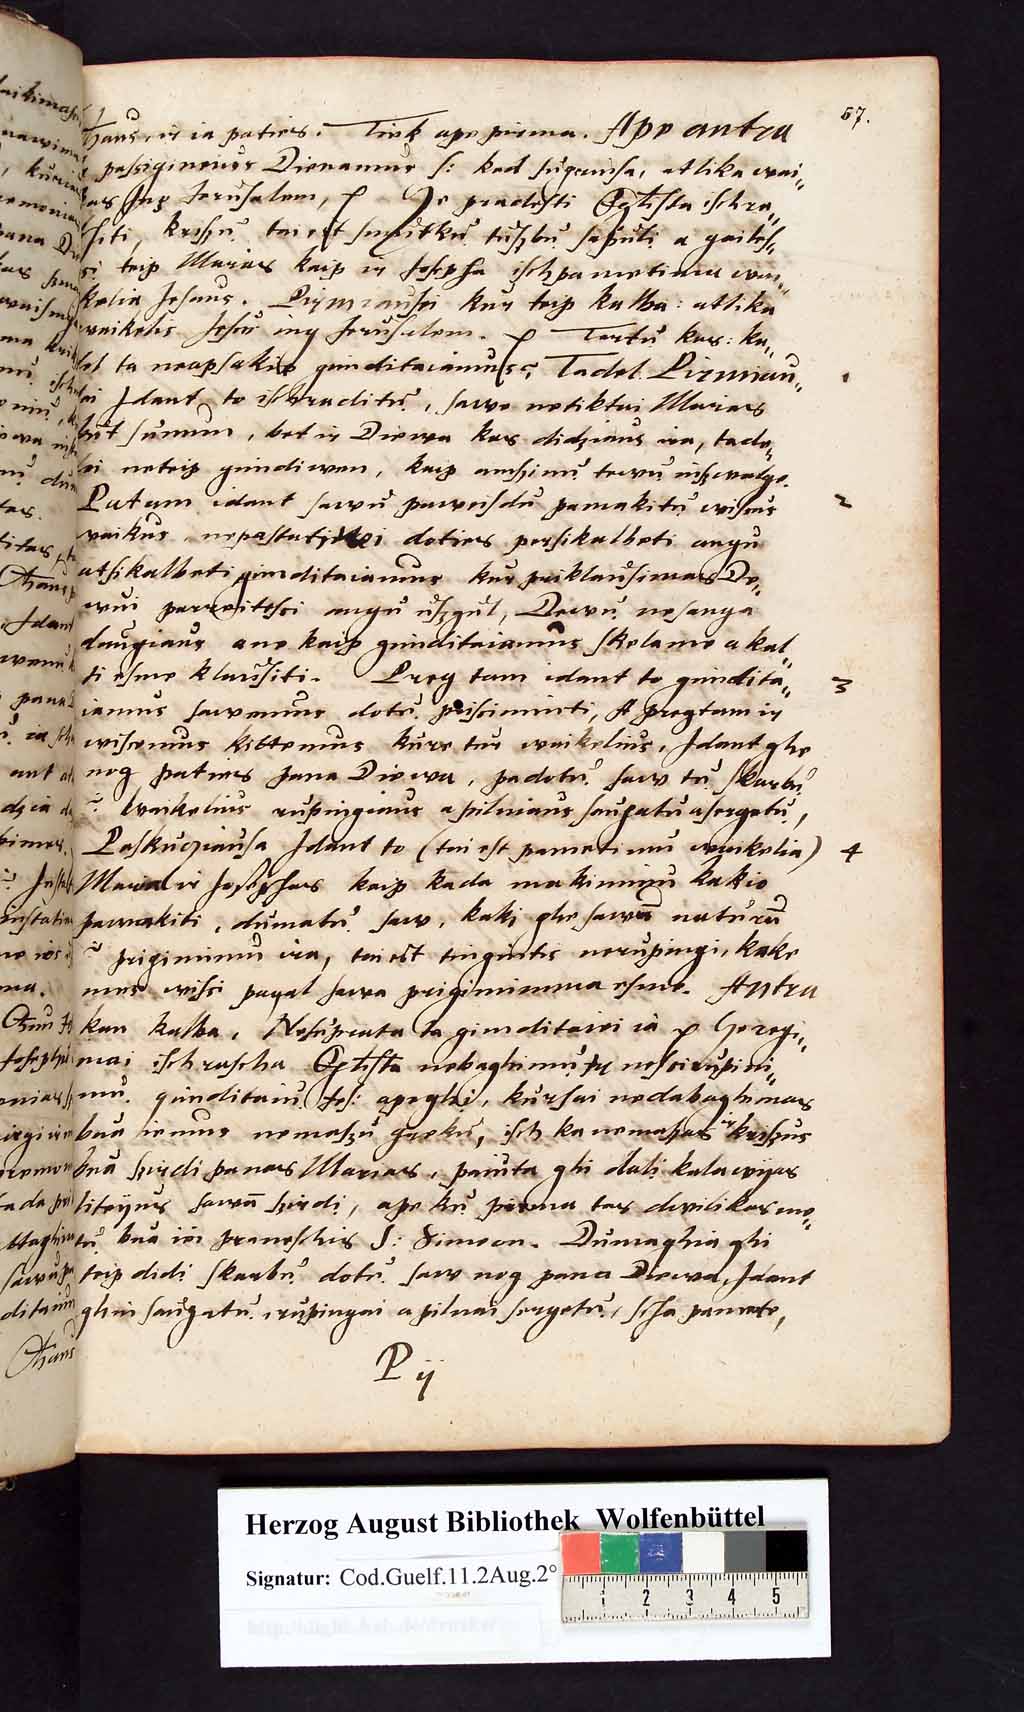 57.
Thaus, ir ia paties. Tiek ape pirma. Ape antra
passigineius Dienamus s: kad sugrinsa, atlika wai„
kas Jng Jerusalem, etc Je pradesti Eglista ischra„
siti, krischu tai est smutku tuschbu sapuli a gailes„
si teip Marias kaip ir Josepha isch pametima wai„
kelia Jesaus. Pirmiausei kur teip kalba: atlika
waikelis Jesus ing Jerusalem. etc Tartu kas: ka„
del ta neapsakie gimditaiamus, Tadel Pirmiau„
1
sei Jdant to ischraditu, sawe netiktai Marias
but sunum, bet ir Diewa kas didziaus ira, tade„
lei neteip gimdiwen, kaip amszinu tewu nuszwalge.
Patam idant sawu paweisdu pamakitu wisus
2
waikus, nepastatitisi doties persikalbeti angu
atsikalbeti gimditaiamus kur priklausimas De„
wui perweitesei angu uszgul, Dewu nesanga
daugiaus ane kaip gimditaiamus skelame a kal„
ti esme klausiti. Preg tam idant to gimdita„
3
iamus sawemus dotu priseiminti, A pregtam ir
wisemus kittemus kure tur waikelius, Jdant ghe
nog paties pana Diewa, padotu saw tu skarbu
u waikelius rupingiaus a pilniaus saugatu a sergetu,
Paskucziausa Jdant to (tai est pametimu waikelia)
4
Maria ir Josephas kaip kada makinimu kakio
pamakiti, dumatu saw, kaki ghe sawu naturu
u prigimimu ira, tai est tinginis nerupingi, kake
mes wissi pagal sawa prigimimma esme. Antra
kan kalba, Nesuprata ta gimditaiei ia etc Ja regi„
mai ischrascha Eglista nedaghimu tu nesirupini„
mu gimditaiu Jes: apeghi, kursai nedabaghimas
bua iemus nemaszu greku, isch ka nemaszas ir krischus
bua szirdi panas Marias, paiuta ghi dali kalawijas
liteijus sawa szirdi, ape ku pirma tas dwilikas me„
tu bua iei praneschis S: Simeon. Dumaghia ghi
teip didi skarbu dotu saw nog pana Diewa, Jdant
ghin saugatu rupingai a pilnai sergetu, scha pamete,
P ij
Herzog August Bibliothek Wolfenbüttel
Signatur: Cod.Guelf.11.2Aug.2°
1 2 3 4 5